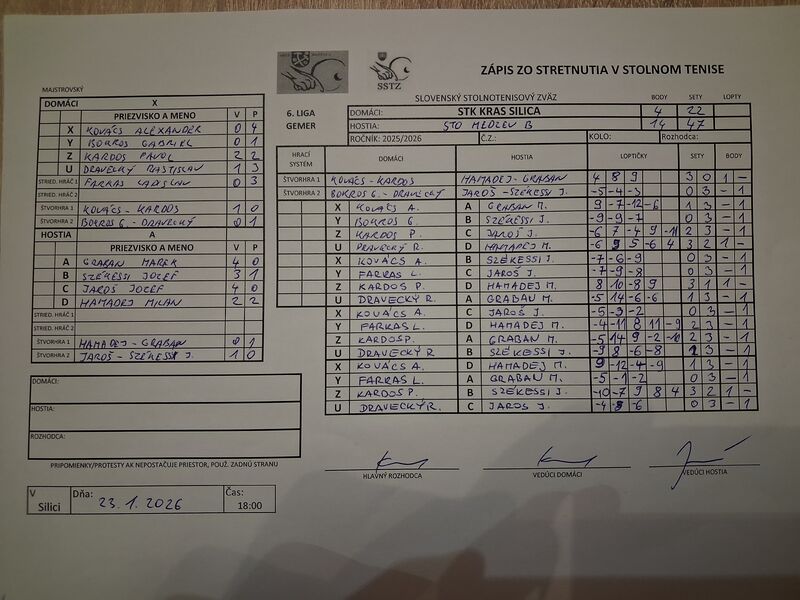 ZÁPIS ZO STRETNUTIA V STOLNOM TENISE
SSTZ
MAJSTROVSKÝ
DOMÁCI X
PRIEZVISKO A MENO V P
X KOVÁCS ALEXANDER 0 4
Y BOKROS GABRIEL 0 1
Z KARDOS PAVOL 2 2
U DRAVECKÝ RASTISLAV 1 3
STRIED. HRÁČ 1 FARKAS LADISLAV 0 3
STRIED. HRÁČ 2
ŠTVORHRA 1 KOVÁCS - KARDOS 1 0
ŠTVORHRA 2 BOKROS G. - DRAVECKÝ 0 1
HOSTIA A
PRIEZVISKO A MENO V P
A GRABAN MAREK 4 0
B SZÉKESSI JOZEF 3 1
C JAROŠ JOZEF 4 0
D HAMADEJ MILAN 2 2
STRIED. HRÁČ 1
STRIED. HRÁČ 2
ŠTVORHRA 1 HAMADEJ - GRABAN 0 1
ŠTVORHRA 2 JAROŠ - SZÉKESSI J. 1 0
DOMÁCI:
HOSTIA:
ROZHODCA:
PRIPOMIENKY/PROTESTY AK NEPOSTAČUJE PRIESTOR, POUŽ. ZADNÚ STRANU
V Silici Dňa: 23.1.2026 Čas: 18:00
SLOVENSKÝ STOLNOTENISOVÝ ZVÄZ BODY SETY LOPTY
6. LIGA GEMER
DOMÁCI: STK KRAS SILICA 4 22
HOSTIA: STO MEDZEV B 14 47
ROČNÍK: 2025/2026 Č.Z.: KOLO: Rozhodca:
HRACÍ SYSTÉM DOMÁCI HOSTIA LOPTIČKY SETY BODY
ŠTVORHRA 1 KOVÁCS - KARDOS HAMADEJ - GRABAN 4 8 9 3 0 1 -
ŠTVORHRA 2 BOKROS G. - DRAVECKÝ JAROŠ - SZÉKESSI J. -5 -4 -3 0 3 - 1
X KOVÁCS A. A GRABAN M. 9 -7 -12 -6 1 3 - 1
Y BOKROS G. B SZÉKESSI J. -9 -9 -7 0 3 - 1
Z KARDOS P. C JAROŠ J. -6 7 -4 9 -11 2 3 - 1
U DRAVECKÝ R. D HAMADEJ M. -6 9 5 -6 4 3 2 1 -
X KOVÁCS A. B SZÉKESSI J. -7 -6 -9 0 3 - 1
Y FARKAS L. C JAROŠ J. -7 -9 -8 0 3 - 1
Z KARDOS P. D HAMADEJ M. 8 10 -8 9 3 1 1 -
U DRAVECKÝ R. A GRABAN M. -5 14 -6 -6 1 3 - 1
X KOVÁCS A. C JAROŠ J. -5 -3 -2 0 3 - 1
Y FARKAS L. D HAMADEJ M. -4 -11 8 11 -9 2 3 - 1
Z KARDOS P. A GRABAN M. -5 14 9 -2 -10 2 3 - 1
U DRAVECKÝ R B SZÉKESSI J. -9 8 -6 -8 1 3 - 1
X KOVÁCS A. D HAMADEJ M. 9 -12 -4 -9 1 3 - 1
Y FARKAS L. A GRABAN M. -5 -1 -2 0 3 - 1
Z KARDOS P. B SZÉKESSI J. -10 -7 9 8 4 3 2 1 -
U DRAVECKÝ R. C JAROŠ J. -4 -8 -6 0 3 - 1
HLAVNÝ ROZHODCA VEDÚCI DOMÁCI VEDÚCI HOSTIA